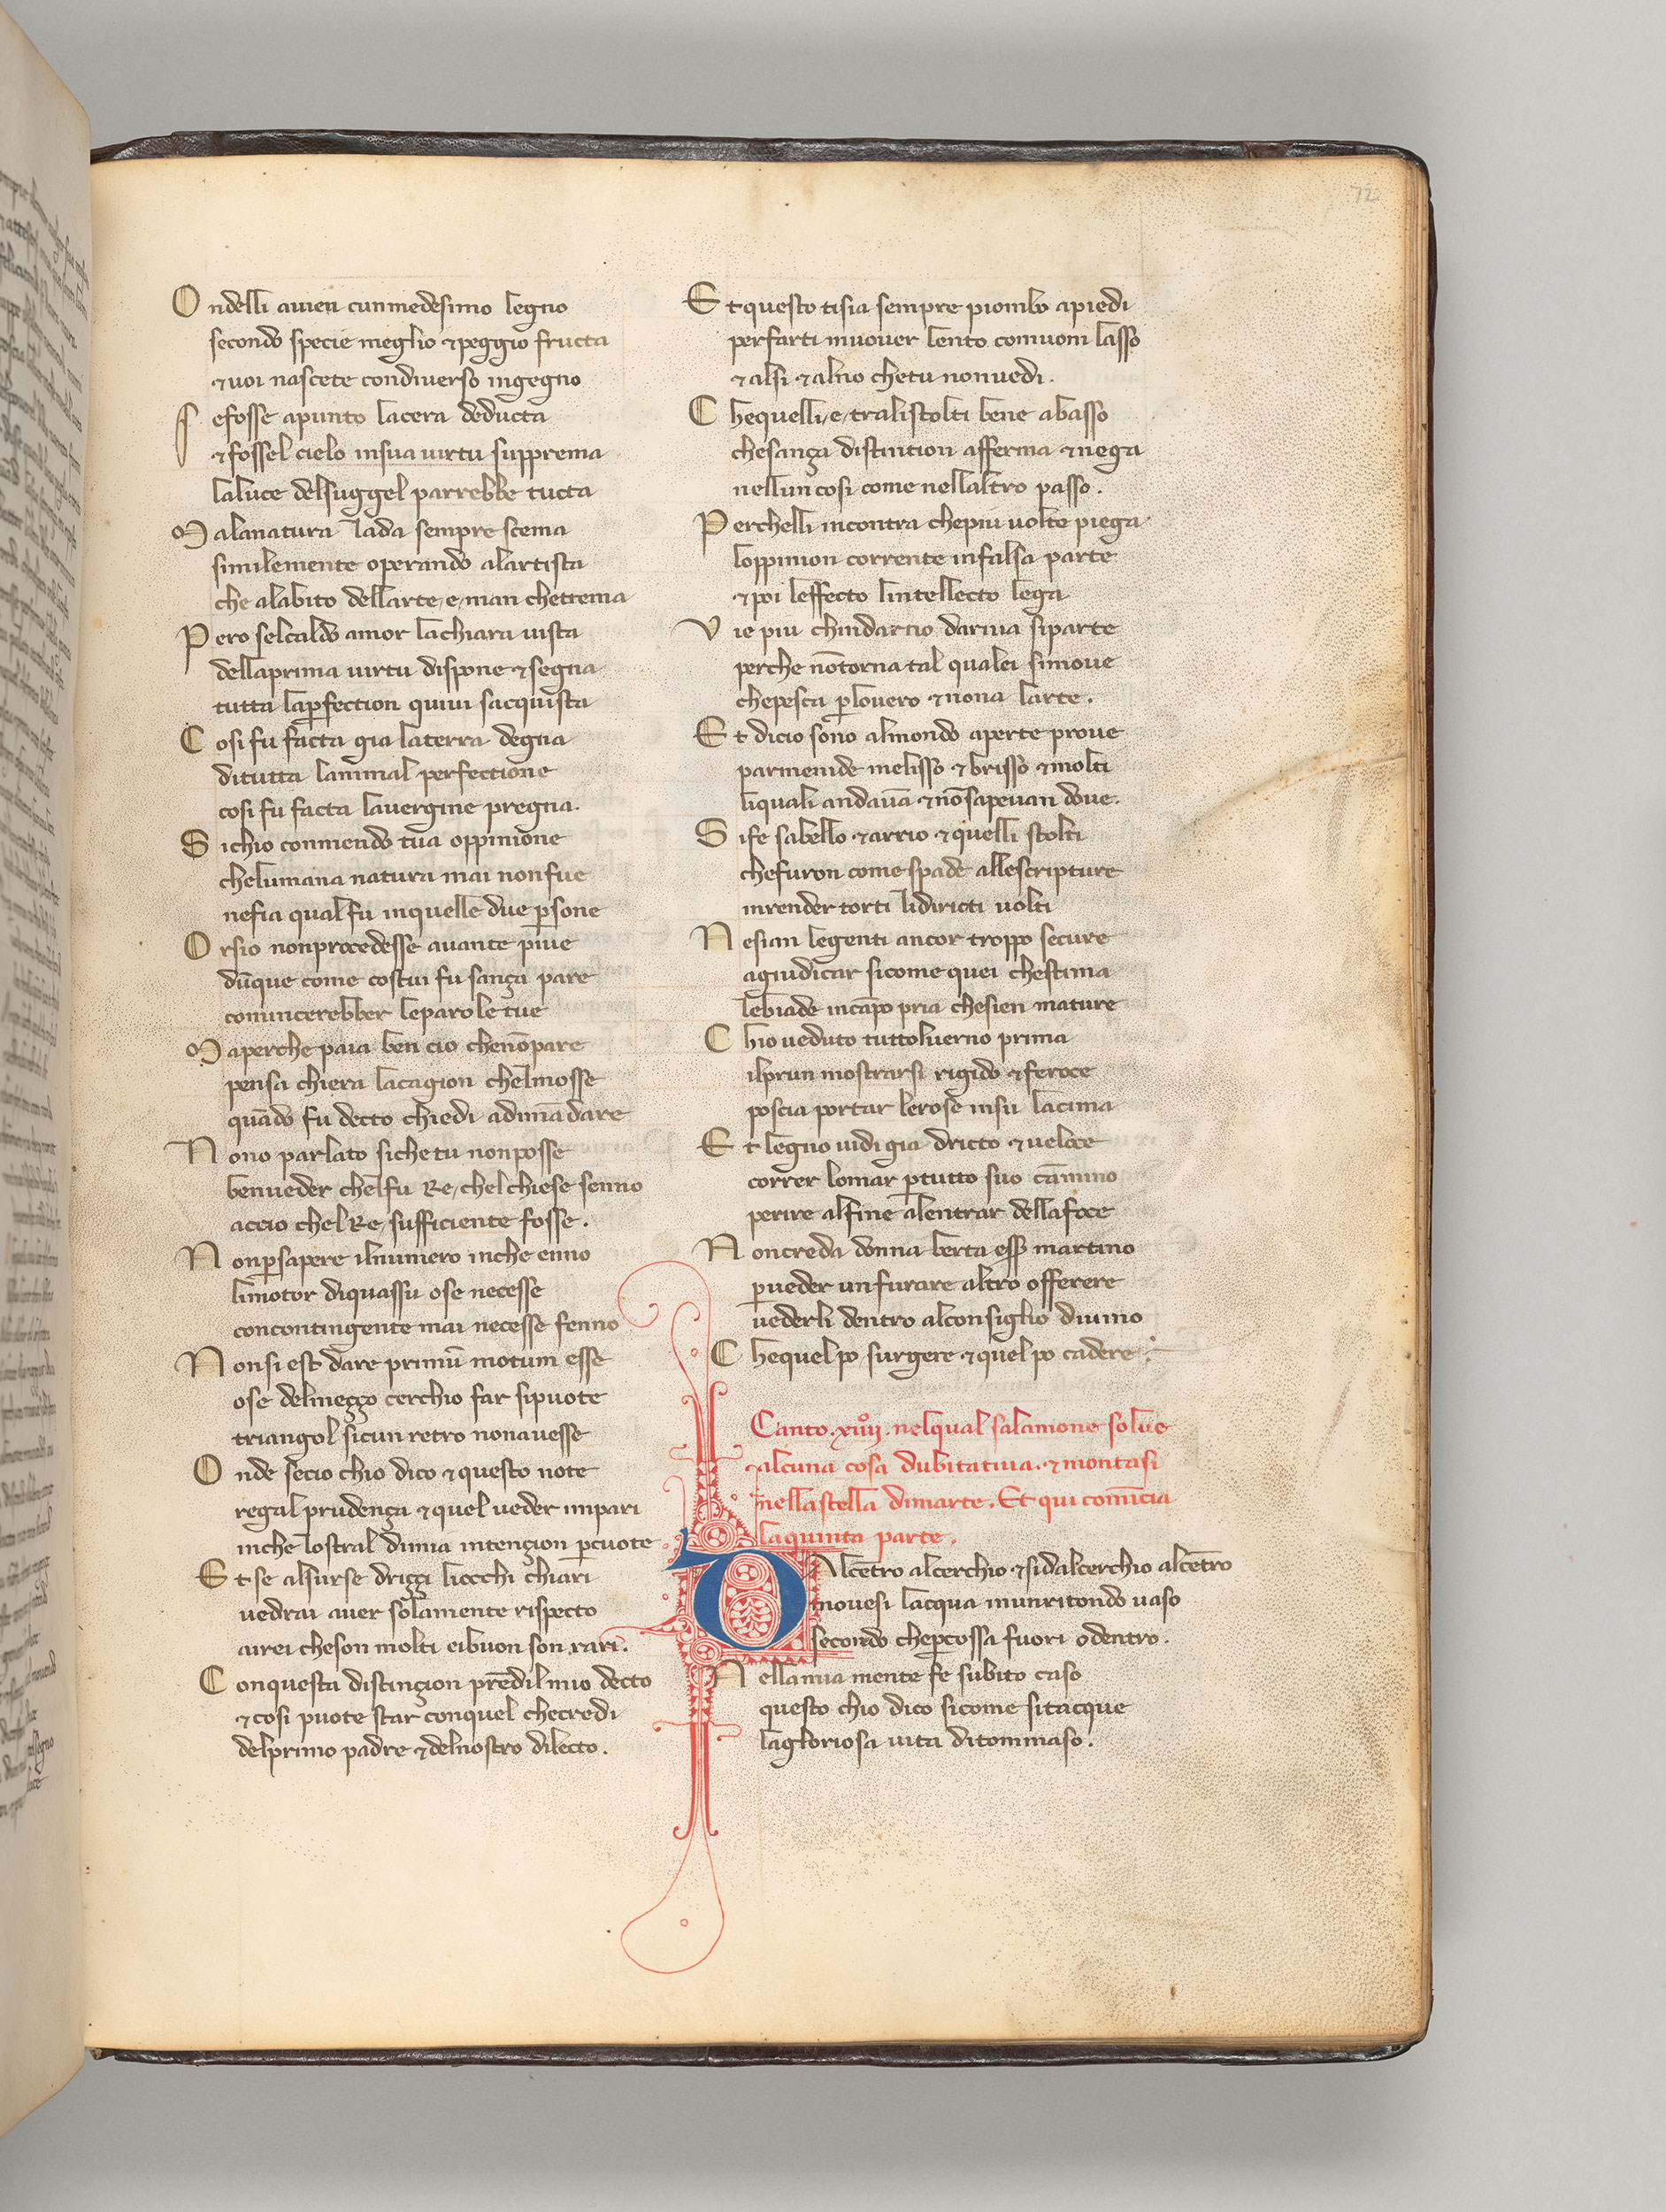 72
Ondelli auien cunmedesimo legno
secondo specie meglio ⁊ peggio fructa
⁊ uoi nascete condiuerso ingegno
Sefosse apunto lacera deducta
⁊ fossel cielo insua uirtu supprema
laluce delsuggel parrebbe tucta
Malanatura lada sempre scema
similemente operando alartista
che alabito dellarte /e/ man chetrema
Pero selcaldo amor lachiara uista
dellaprima uirtu dispone ⁊ segna
tutta lap̄fection quiui sacquista
Cosi fu facta gia laterra degna
ditutta lanimal perfectione
cosi fu facta lauergine pregna.
Sichio conmendo tua oppinione
chelumana natura mai nonfue
nefia qual fu inquelle due p̄sone
Orsio nonprocedesse auante piue
dūque come costui fu sança pare
comincerebber leparole tue
Maperche paia ben cio chenōpare
pensa chiera lacagion chelmosse
quādo fu decto chiedi adimādare
Nono parlato sichetu nonposse
benueder chelfu Re, chel chiese senno
accio chel Re sufficiente fosse.
Nonp̄sapere ilnumero inche enno
limotor diquassu ose necesse
concontingente mai necesse fenno
Nonsi est dare primū motum esse
ose delmeçço cerchio far sipuote
triangol sicun retro nonauesse
Onde secio chio dico ⁊ questo note
regal prudença ⁊ quel ueder impari
inche lostral dimia intençion p̄cuote
Et se alsurse driççi liocchi chiari
uedrai auer solamente rispecto
airei cheson molti eibuon son rari.
Conquesta distinçion prēdilmio decto
⁊ cosi puote star conquel checredi
delprimo padre ⁊ delnostro dilecto.
Et questo tisia sempre piombo apiedi
perfarti muouer lento comuom lasso
⁊ alsi ⁊ alno chetu nonuedi.
Chequelli /e/ tralistolti bene abasso
chesança distintion afferma ⁊ nega
nellun cosi come nellaltro passo.
Perchelli incontra chepiu uolte piega
loppinion corrente infalsa parte
⁊ poi leffecto lintellecto lega
Vie piu chindarno dariua siparte
perche nōtorna tal qualei simoue
chepesca p̄louero ⁊ nona larte.
Et dicio sono almondo aperte proue
parmenide melisso ⁊ brisso ⁊ molti
liquali andauā ⁊ nōsapeuan doue.
Sife sabello ⁊ arrio ⁊ quelli stolti
chefuron come spade allescripture
inrender torti lidiricti uolti
Nesian legenti ancor troppo secure
agiudicar sicome quei chestima
lebiade incāpo pria chesien mature
Chio ueduto tuttoluerno prima
ilprun mostrarsi rigido ⁊ feroce
poscia portar lerose insu lacima
Et legno uidi gia dricto ⁊ ueloce
correr lomar p̄tutto suo cāmino
perire alfine alentrar dellafoce
Noncreda donna berta ess̄ martino
p̄ueder un furare altro offerere
uederli dentro alconsiglio diuino
Chequel po surgere ⁊ quel po cadere.
Canto .xiiij. nelqual salamone solue
alcuna cosa dubitatiua. ⁊ montasi
nellastella dimarte. Et qui comīcia
laquinta parte.
DAlcētro alcerchio ⁊ sidalcerchio alcētro
mouesi lacqua inunritondo uaso
secondo chep̄cossa fuori odentro.
Nellamia mente fe subito caso
questo chio dico sicome sitacque
lagloriosa uita ditommaso.